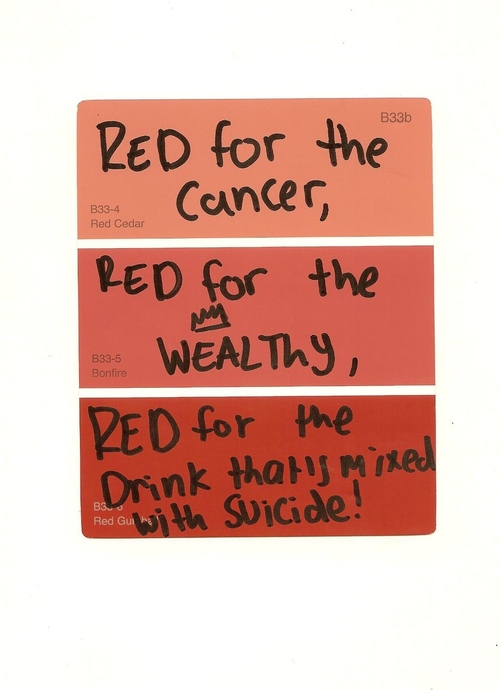 B33b
RED for the
Cancer,
B33-4
Red Cedar
RED for the
WEALThy,
B33-5
Bonfire
RED for the
Drink that's mixed
with Suicide!
Red